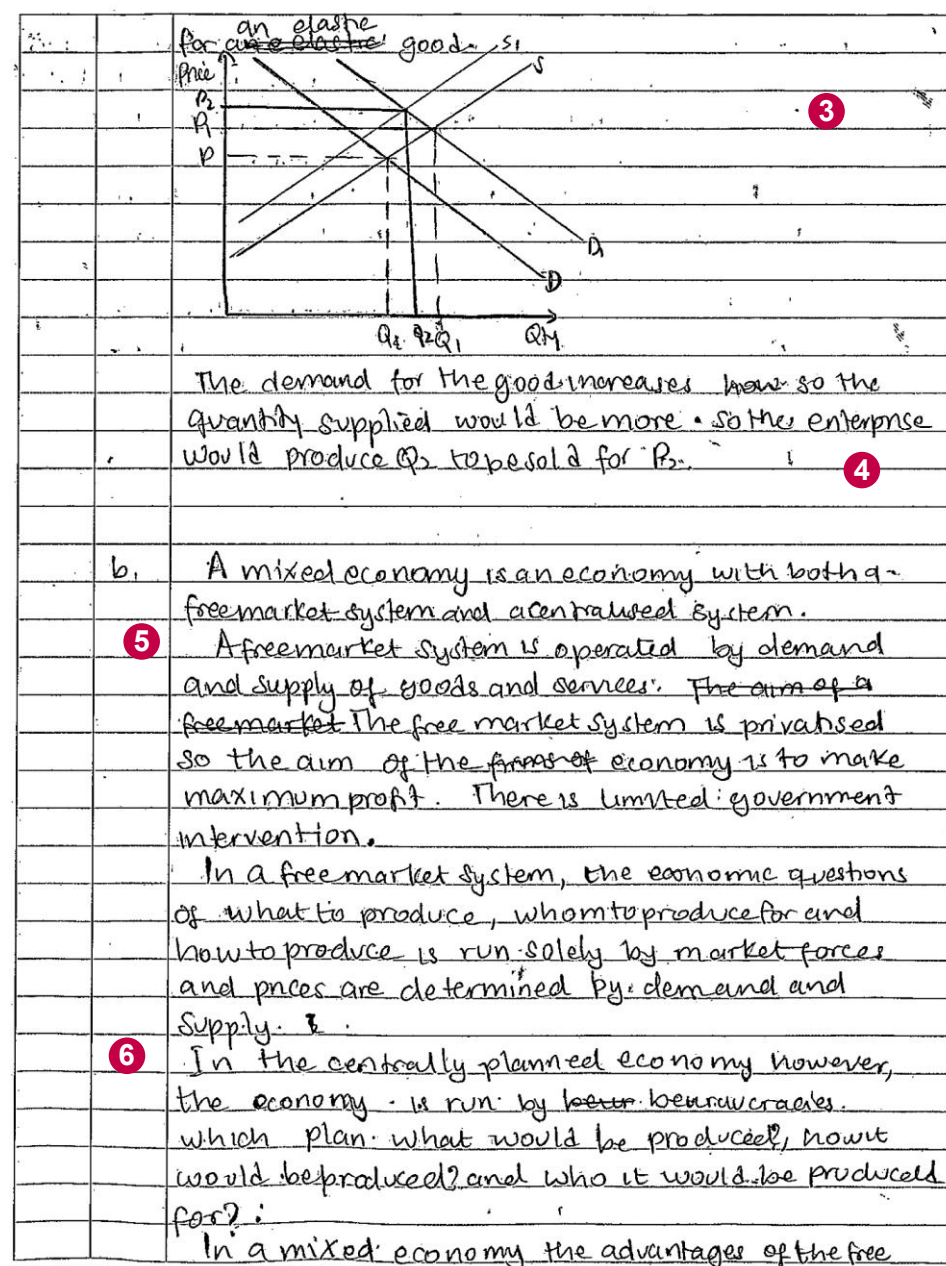 an elastic
for an e elastic good.
S1
S
Price
P2
3
P1
P
D1
D
Q2 Q1 Qty
The demand for the good increases so the
quantity supplied would be more. So the enterprise
would produce Q2 to be sold for P2.
4
b. A mixed economy is an economy with both a
free market system and a centralised system.
5
A free market system is operated by demand
and supply of goods and services. The aim of a
free market The free market system is privatised
so the aim of the firms of economy is to make
maximum profit. There is limited government
intervention.
In a free market system, the economic questions
of what to produce, whom to produce for and
how to produce is run solely by market forces
and prices are determined by demand and
supply.
6
In the centrally planned economy however,
the economy is run by beur beuraucracies.
which plan what would be produced?, how it
would be produced? and who it would be produced
for?.
In a mixed economy the advantages of the free